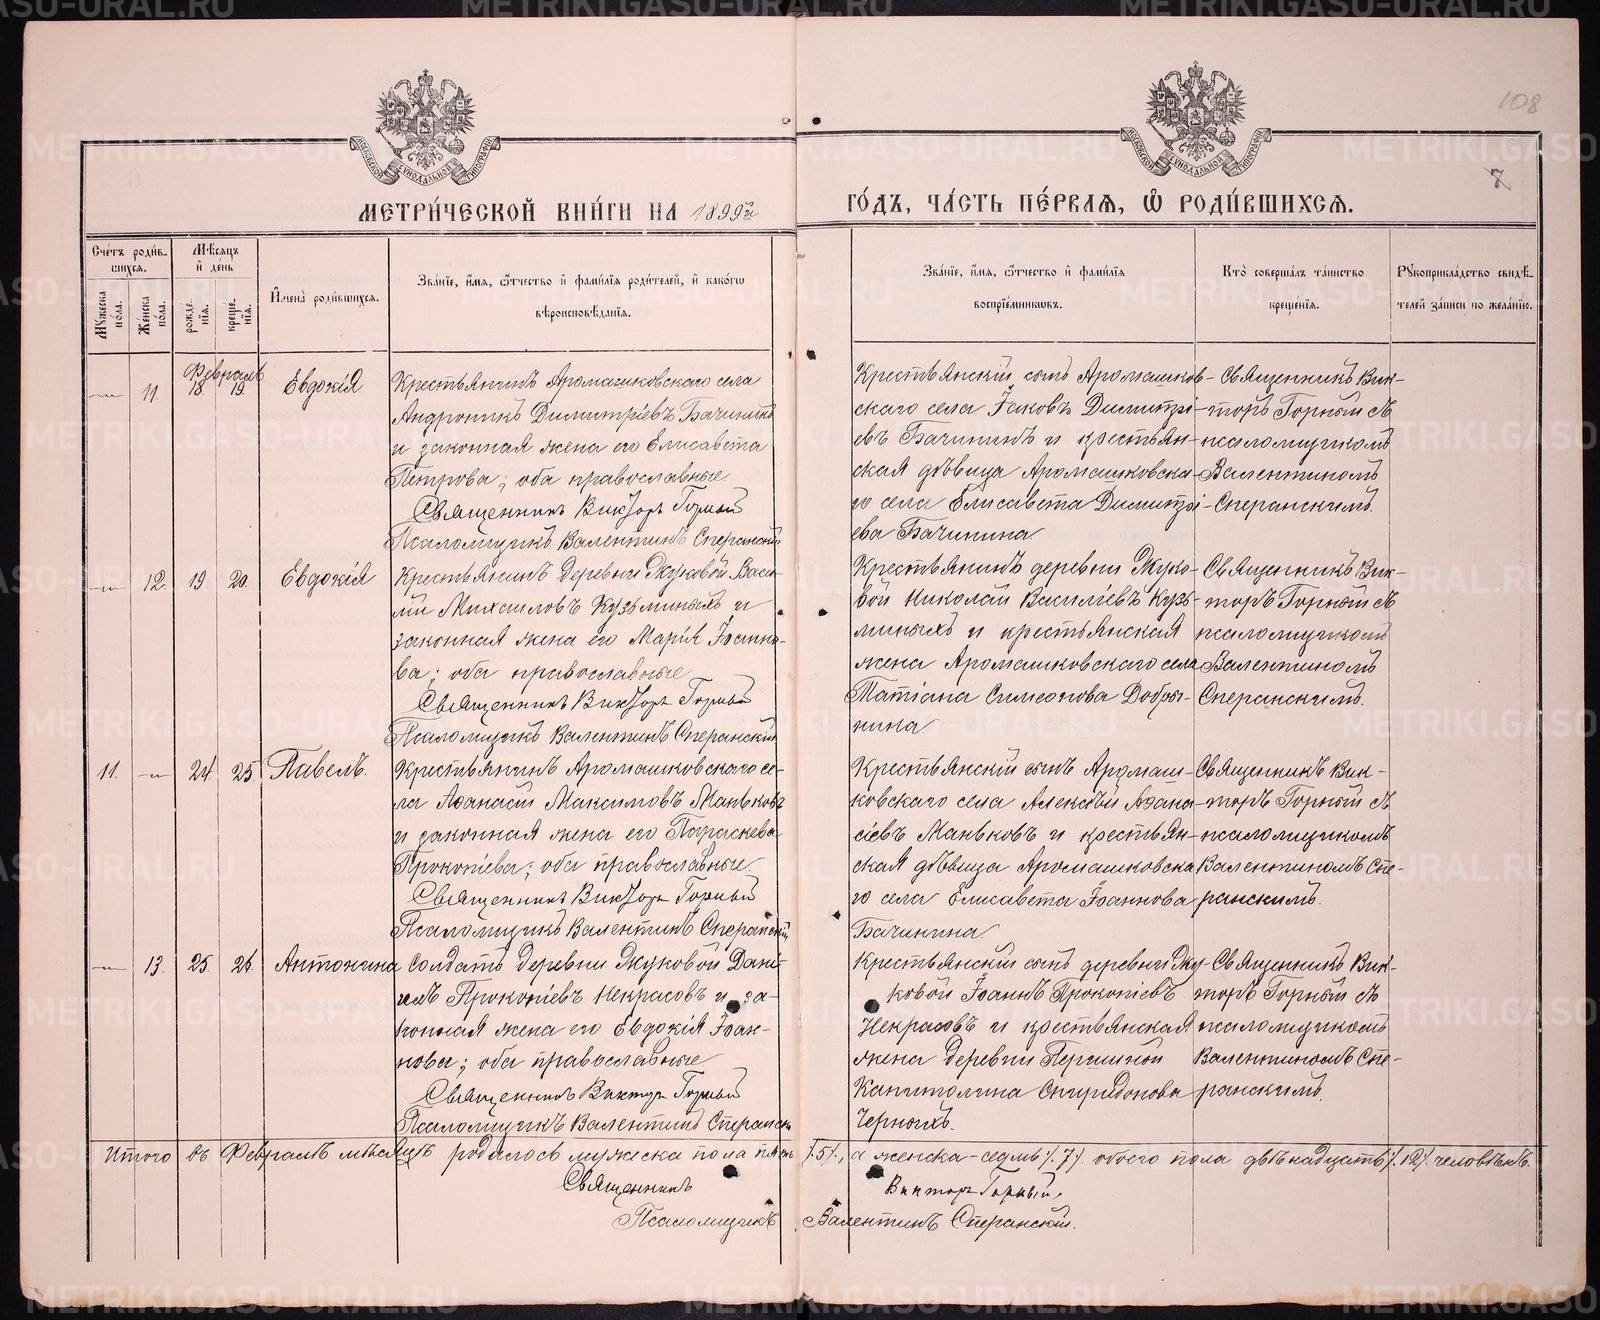 108
7
МОСКОВСКОЙ СѴНОДАЛЬНОЙ ТИПОГРАФІИ
МОСКОВСКОЙ СѴНОДАЛЬНОЙ ТИПОГРАФІИ
МЕТРИ́ЧЕСКОЙ КНИ́ГИ НА 1899й ГО́ДЪ, ЧА́СТЬ ПЕ́РВАЯ, Ѽ РОДИ́ВШИХСЯ.
Сче́тъ роди́в-
шихся.
Му́жеска по́ла.
Же́нска по́ла.
Мѣ́сяцъ
и҆ де́нь
рожде́-
нїя.
креще́-
нїя.
И҆мена̀ роди́вшихся.
Зва́нїе, и҆́мя, ѻ҆́тчество и҆ фами́лїя роди́телей, и҆ како́гѡ
вѣроисповѣ́данїя.
Зва́нїе, и҆́мя, ѻ҆́тчество и҆ фами́лїя
воспрїе́мникѡвъ.
Кто̀ соверша́лъ та́инство
креще́нїя.
Рꙋкоприкла́дство свидѣ́-
телей за́писи по жела́нїю.
Февраль
— 11. 18. 19. Евдокія
Крестьянинъ Аромашковскаго села
Андроникъ Димитріевъ Бачининъ
и законная жена его Елисавета
Петрова; оба православные
Священникъ Викторъ Горный
Псаломщикъ Валентинъ Сперанскій
Крестьянскій сынъ Аромашков-
скаго села Іаковъ Димитрі-
евъ Бачининъ и крестьян-
ская дѣвица Аромашковска-
го села Елисавета Димитрі-
ева Бачинина
Священникъ Вик-
торъ Горный съ
псаломщикомъ
Валентиномъ
Сперанскимъ.
— 12. 19. 20. Евдокія
Крестьянинъ деревни Жуковой Васи-
лій Михаиловъ Кузьминыхъ и
законная жена его Марія Іоанно-
ва; оба православные
Священникъ Викторъ Горный
Псаломщикъ Валентинъ Сперанскій
Крестьянинъ деревни Жуко-
вой Николай Василіевъ Кузь-
миныхъ и крестьянская
жена Аромашковскаго села
Татіана Симеонова Добры-
нина
Священникъ Вик-
торъ Горный съ
псаломщикомъ
Валентиномъ
Сперанскимъ.
11. — 24 25 Павелъ.
Крестьянинъ Аромашковскаго се-
ла Аѳанасій Максимовъ Маньковъ
и законная жена его Параскева
Прокопіева; оба православные
Священникъ Викторъ Горный
Псаломщикъ Валентинъ Сперанскій
Крестьянскій сынъ Аромаш-
ковскаго села Алексѣй Аѳана-
сіевъ Маньковъ и крестьян-
ская дѣвица Аромашковска
го села Елисавета Іоаннова
Бачинина
Священникъ Вик-
торъ Горный съ
псаломщикомъ
Валентиномъ Спе-
ранскимъ.
— 13. 25. 26. Антонина
Солдатъ деревни Жуковой Дані-
илъ Прокопіевъ Некрасовъ и за-
конная жена его Евдокія Іоан-
нова; оба православные
Священникъ Викторъ Горный
Псаломщикъ Валентинъ Сперанскій
Крестьянскій сынъ деревни Жу-
ковой Іоаннъ Прокопіевъ
Некрасовъ и крестьянская
жена деревни Першиной
Капитолина Спиридонова
Черныхъ.
Священникъ Вик-
торъ Горный съ
псаломщикомъ
Валентиномъ Спе-
ранскимъ.
Итого въ Февралѣ мѣсяцѣ родилось мужеска пола пять /.5/., а женска-седмь /.7/. обоего пола двѣнадцать /.12/. человѣкъ.
Священникъ Викторъ Горный.
Псаломщикъ Валентинъ Сперанскій.
METRIKI.GASO-URAL.RU